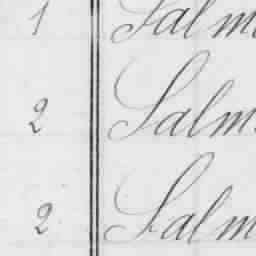 1 Salm
2 Salm
2 Salm